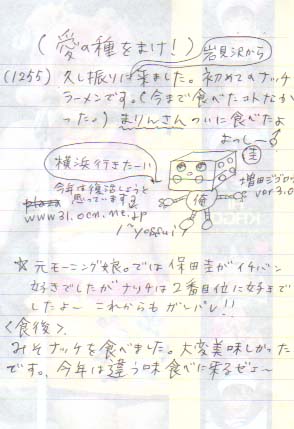 (愛の種をまけ！) 岩見沢から
(1255) 久し振りに来ました。初めてのナッチ
ラーメンです。(今まで食べたコトなか
った。) まりんさんついに食べたよ
よっしー♂
横浜行きたーい
圭
俺
増田ジゴロウ
ver3.0
今年は復活しようと
思っています
www31.ocn.ne.jp
/~yossui
☆元モーニング娘。では保田圭がイチバン
好きでしたがナッチは2番目位に好きで
したよ～ これからもガンバレ!!
<食後>
みそナッチを食べました。大変美味しかった
です。今年は違う味食べに来るぜぇ～